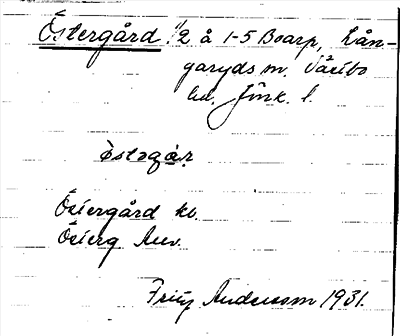 Östergård 1/2 å 1-5 Boarp, Lån-
garyds sn. Västbo
hd. Jönk. l.
östəgar
Östergård kv.
Österg Auv.
Fritz Andersson 1931.